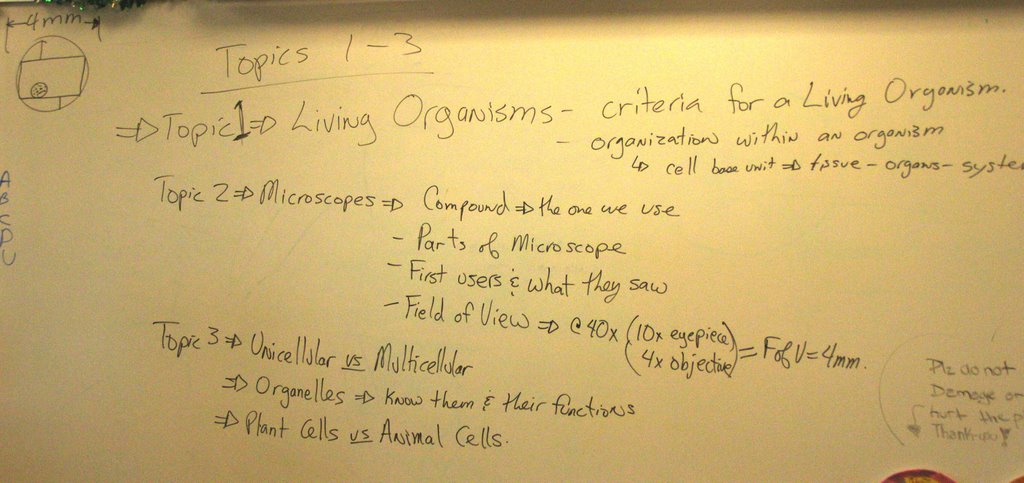 4mm
Topics 1-3
⇒ Topic 1 ⇒ Living Organisms - criteria for a Living Organism.
- organization within an organism
↳ cell base unit ⇒ tissue - organs - system
Topic 2 ⇒ Microscopes ⇒ Compound ⇒ the one we use
- Parts of Microscope
- First users & what they saw
- Field of View ⇒ @ 40x (10x eyepiece
4x objective) = F of V = 4mm.
Topic 3 ⇒ Unicellular vs Multicellular
⇒ Organelles ⇒ Know them & their functions
⇒ Plant Cells vs Animal Cells.
A
B
C
D
U
Plz do not
Damage or
hurt the p
Thank-you!